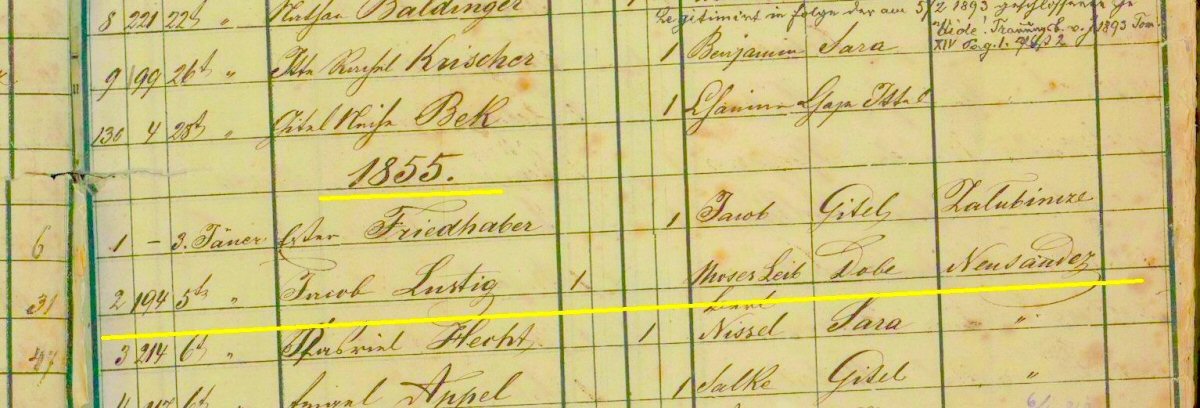 8 221 22t " Nathan Baldinger
Legitimirt in folge der am 5/2 1893 geschlossene
Trauungsb. v. J 1893 Tom
XIV Pag. 1.
9 99 26t " Rachel Krischer 1 Benjamin Sara
130 4 28t " Gitel Bek 1 Chaje Ittel
1855.
6 1 – 3. Jäner Ester Friedhaber 1 Jacob Gitel Zalubincze
31 2 194 5te " Jacob Lustig 1 Moses Leib Dobe Neusandez
47 3 214 6t " Gabriel Hecht 1 Nissel Sara "
6t " Feigel Appel 1 Salke Gitel "